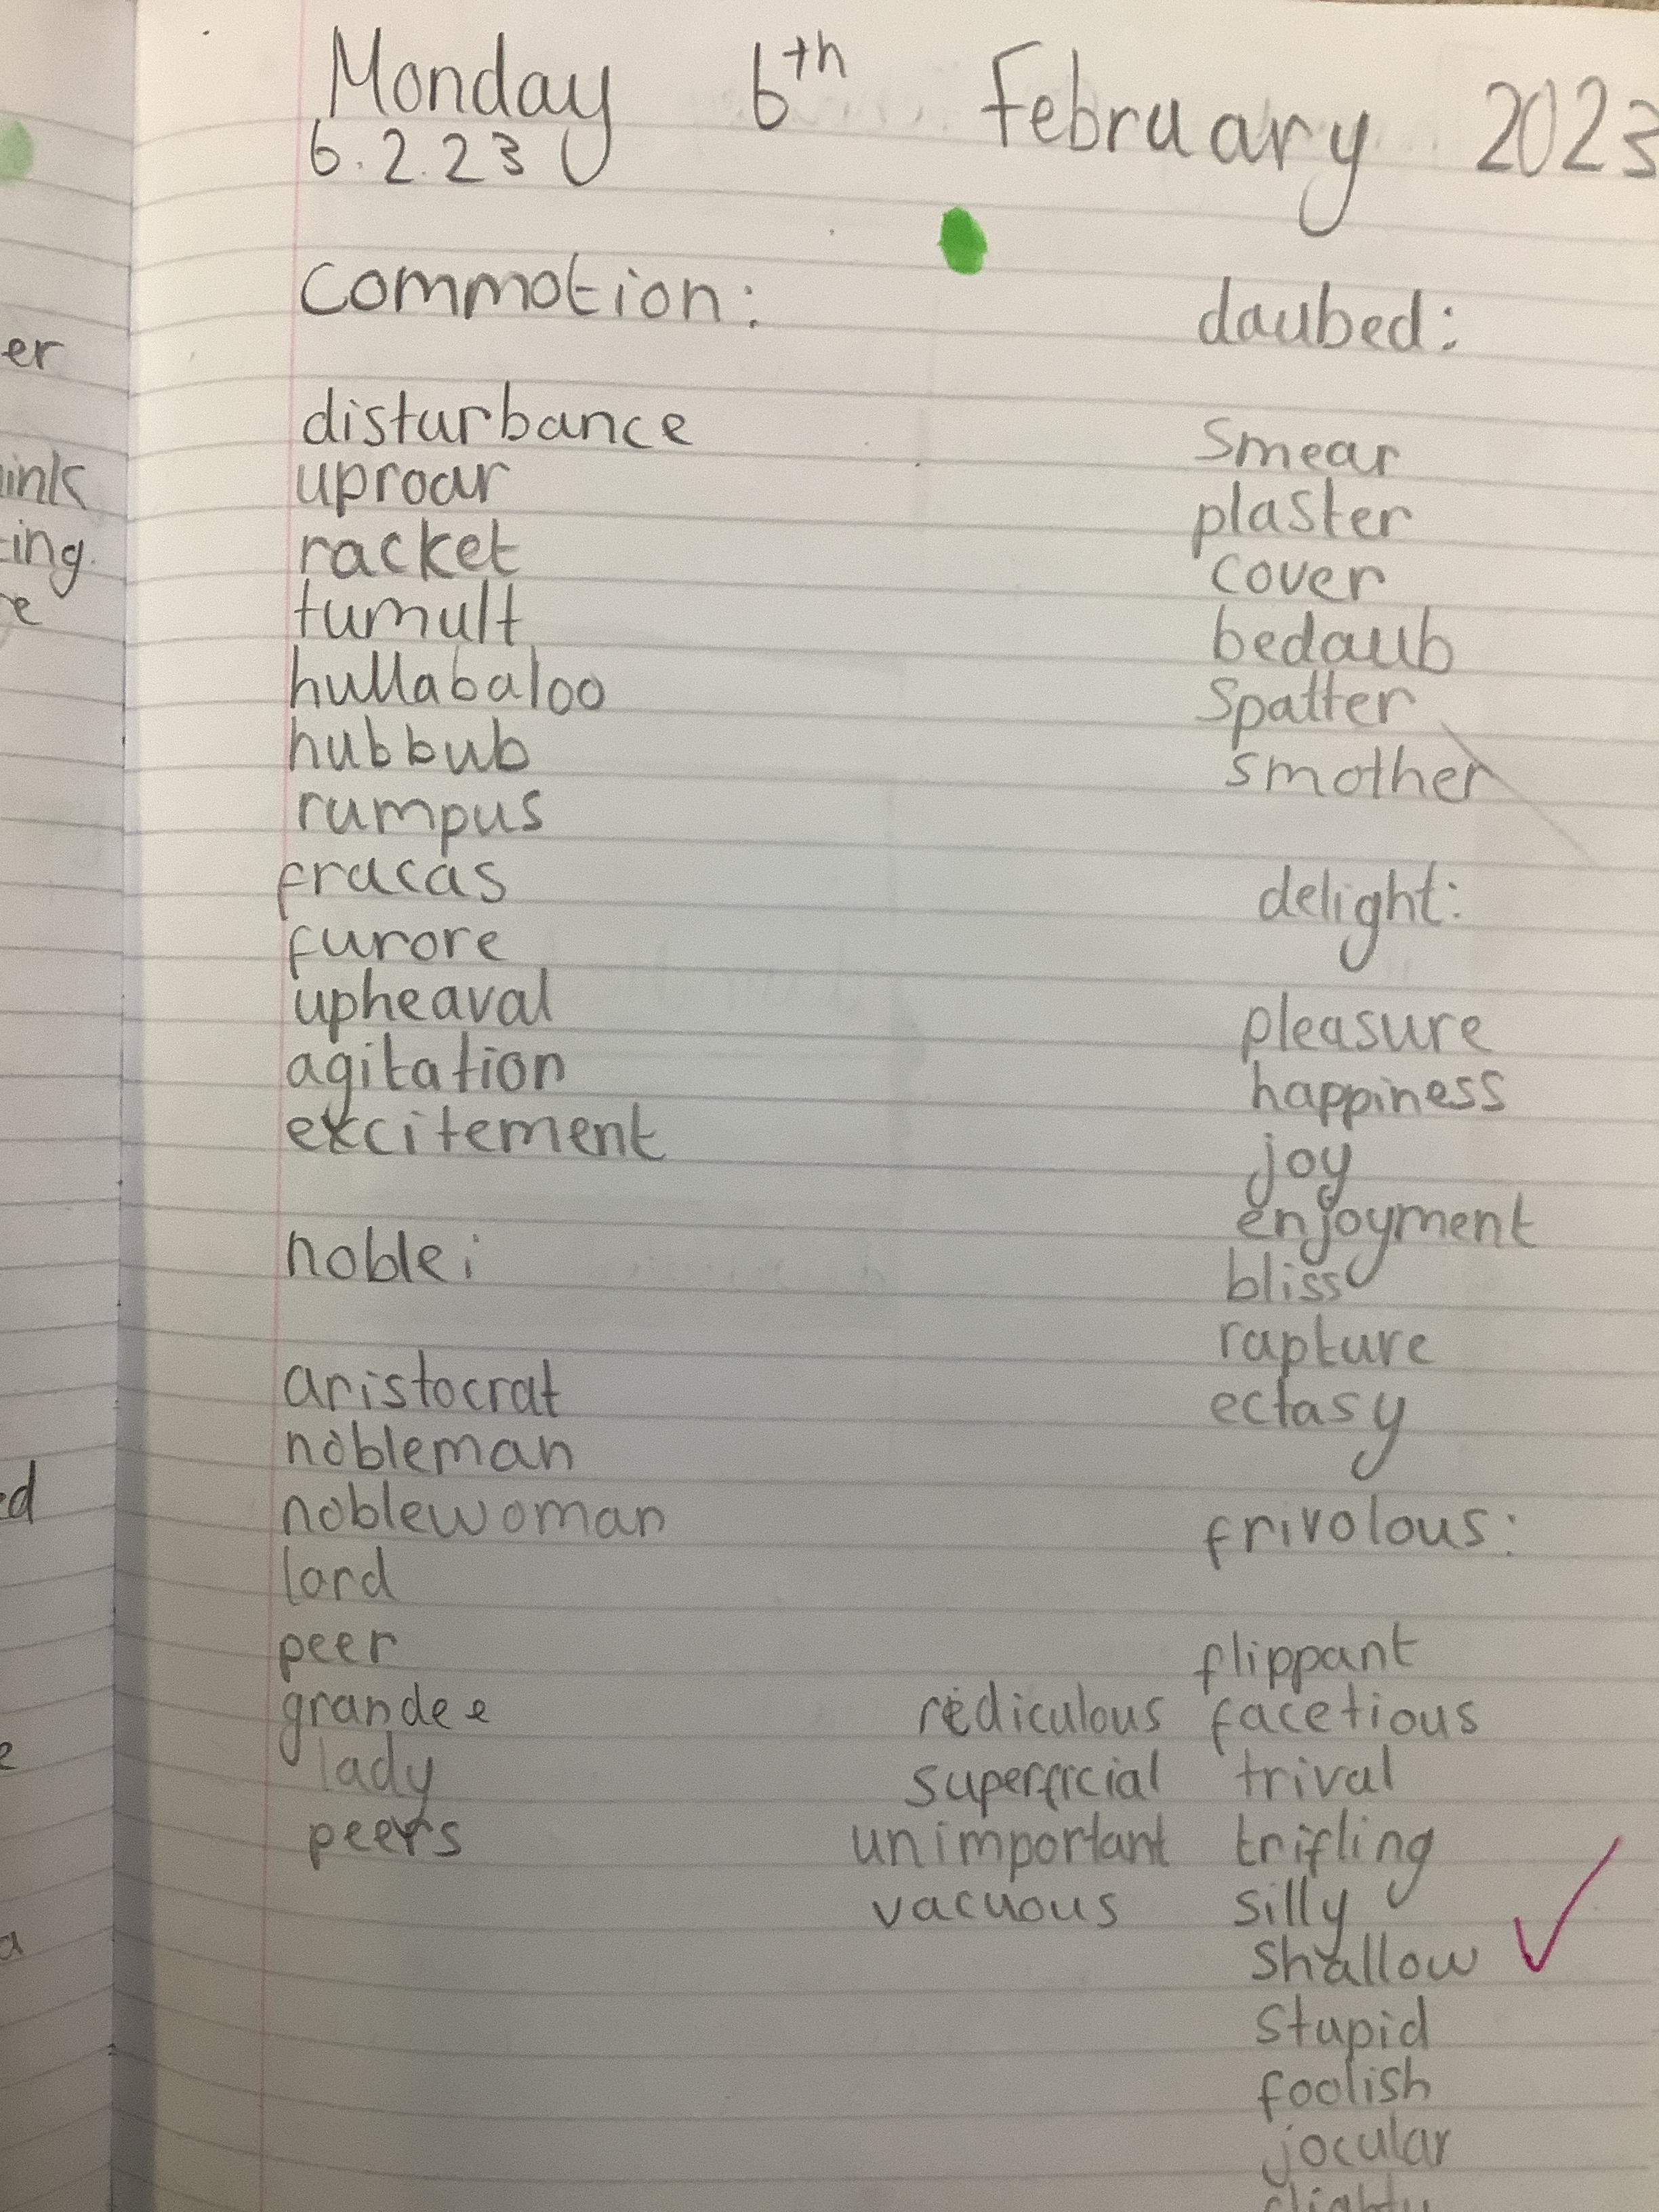 Monday 6th February 2023
6.2.23
commotion:
disturbance
uproar
racket
tumult
hullabaloo
hubbub
rumpus
fracas
furore
upheaval
agitation
excitement
noble:
aristocrat
nobleman
noblewoman
lord
peer
grandee
lady
peers
daubed:
smear
plaster
cover
bedaub
spatter
smother
delight:
pleasure
happiness
joy
enjoyment
bliss
rapture
ectasy
frivolous:
flippant
rediculous facetious
superficial trival
unimportant trifling
vacuous silly
shallow
stupid
foolish
jocular
er
ing